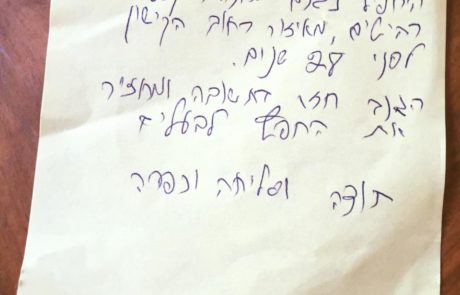 רהיטים, מאיזור רחוב הקישון
לפני שנים.
הגנב חזר בתשובה ומחזיר
את החפץ לבעלים
תודה וסליחה וכפרה